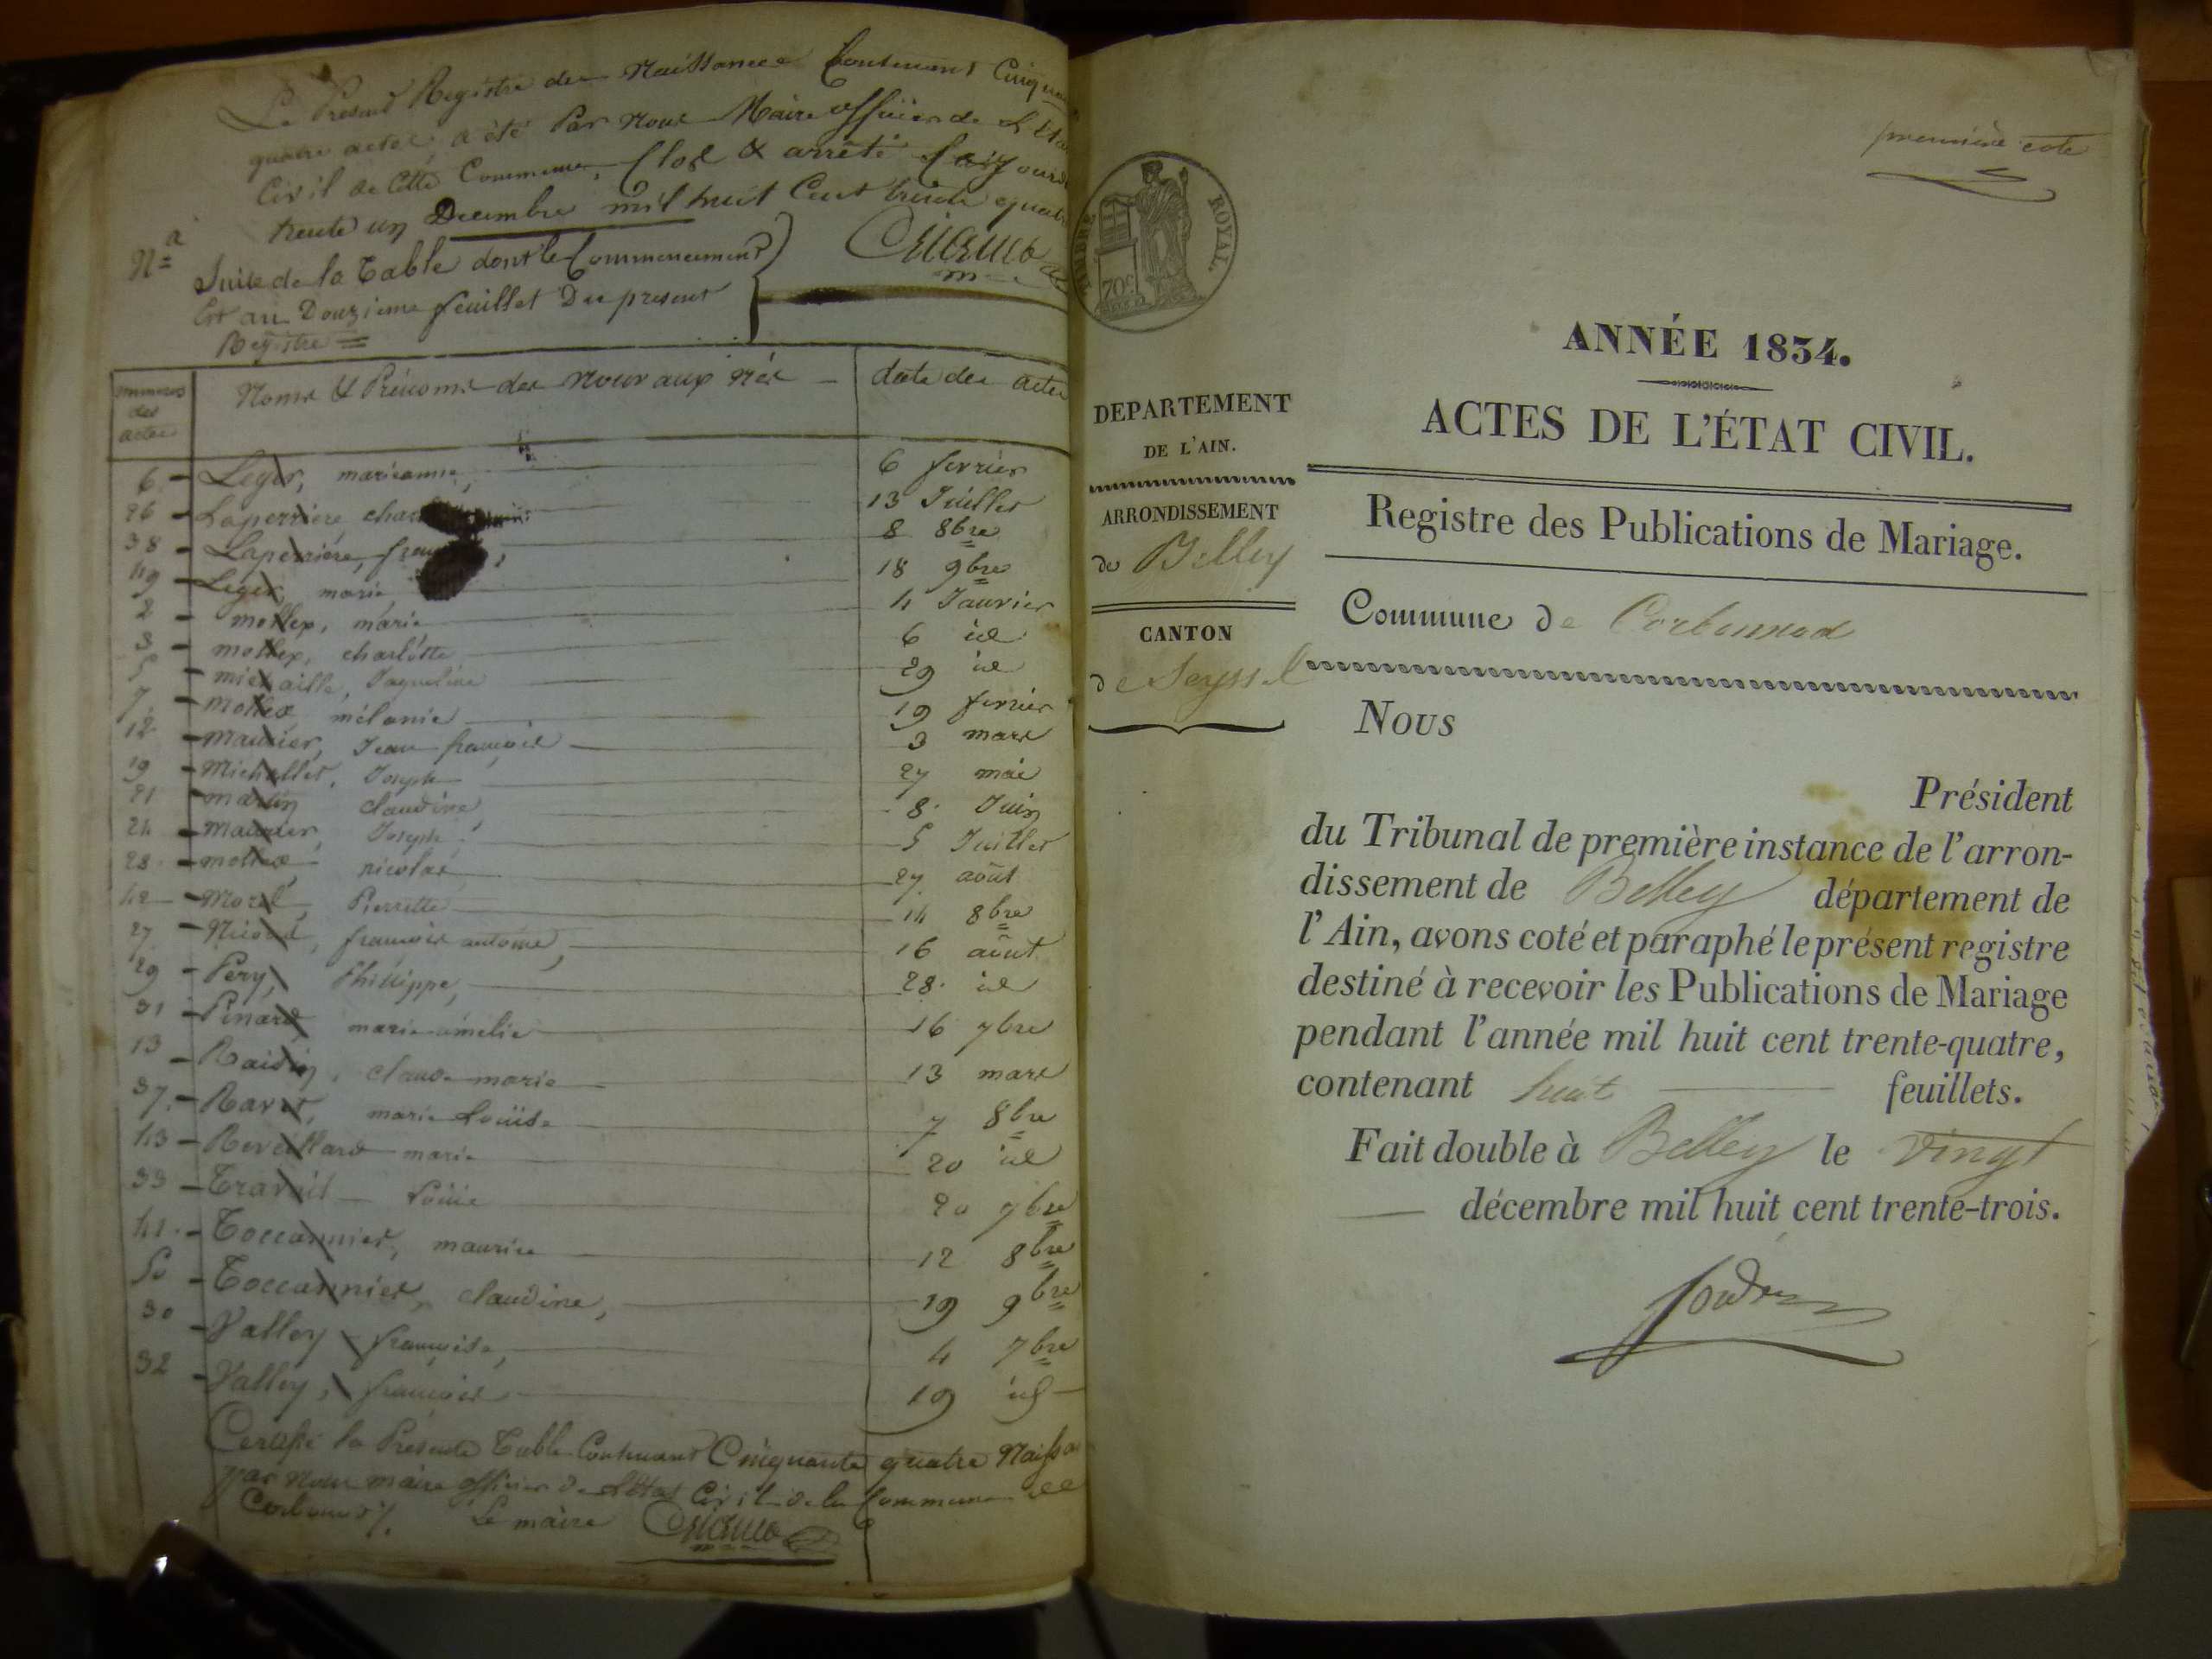 Le Présent Registre des Naissances Contenant Cinquante
quatre actes a été Par Nous Maire officier de L'Etat
Civil de Cette Commune, Clos & arrêté Cejourd
trente un Decembre mil huit Cent trente quatre
Na
Suite de la Table dont le Commencement
Est au Douzieme feuillet Du present
Registre
numeros des actes Noms & Prénoms des Nouveaux Nés date des actes
6 - Leger, marianne 6 fevrier
26 - Laperriere 13 Juillet
38 - Laperriére, 8 8bre
49 - Leger, marie 18 9bre
2 - mottex, marie 4 Janvier
3 - mottex, charlotte 6 id
5 - michaille, Jaqueline 29 id
7 - mottex mélanie 19 fevrier
12 - maurier, Jean françois 3 mars
19 - Michallet, Joseph 27 mai
21 - martin claudine 8 Juin
24 - maurier Joseph 5 Juillet
28 - mottex nicolas 27 août
42 - Morel Pierrette 14 8bre
27 - Nicoud, françois antoine, 16 août
29 - Pery, Philippe, 28 id
31 - Pinard marie amelie 16 7bre
13 - Raisin, claude marie 13 mars
37 - Ravet, marie Louise 7 8bre
43 - Reveillard marie 20 id
33 - Travail Louise 20 7bre
41 - Toccannier, maurice 12 8bre
50 - Toccannier, claudine, 19 9bre
30 - Valley françoise, 4 7bre
32 - Valley, françois 19 id
Certifié la Présente Table Contenant Cinquante quatre Naissa
par Nous maire officier de L'état Civil de la Commune de
Corbonod Le maire
première cote
TIMBRE ROYAL.
70c
ANNÉE 1834.
ACTES DE L'ÉTAT CIVIL.
DEPARTEMENT
DE L'AIN.
ARRONDISSEMENT
de Belley
CANTON
de Seyssel
Registre des Publications de Mariage.
Commune de Corbonnod
Nous
Président
du Tribunal de première instance de l'arron-
dissement de Belley département de
l'Ain, avons coté et paraphé le présent registre
destiné à recevoir les Publications de Mariage
pendant l'année mil huit cent trente-quatre,
contenant huit feuillets.
Fait double à Belley le vingt
décembre mil huit cent trente-trois.